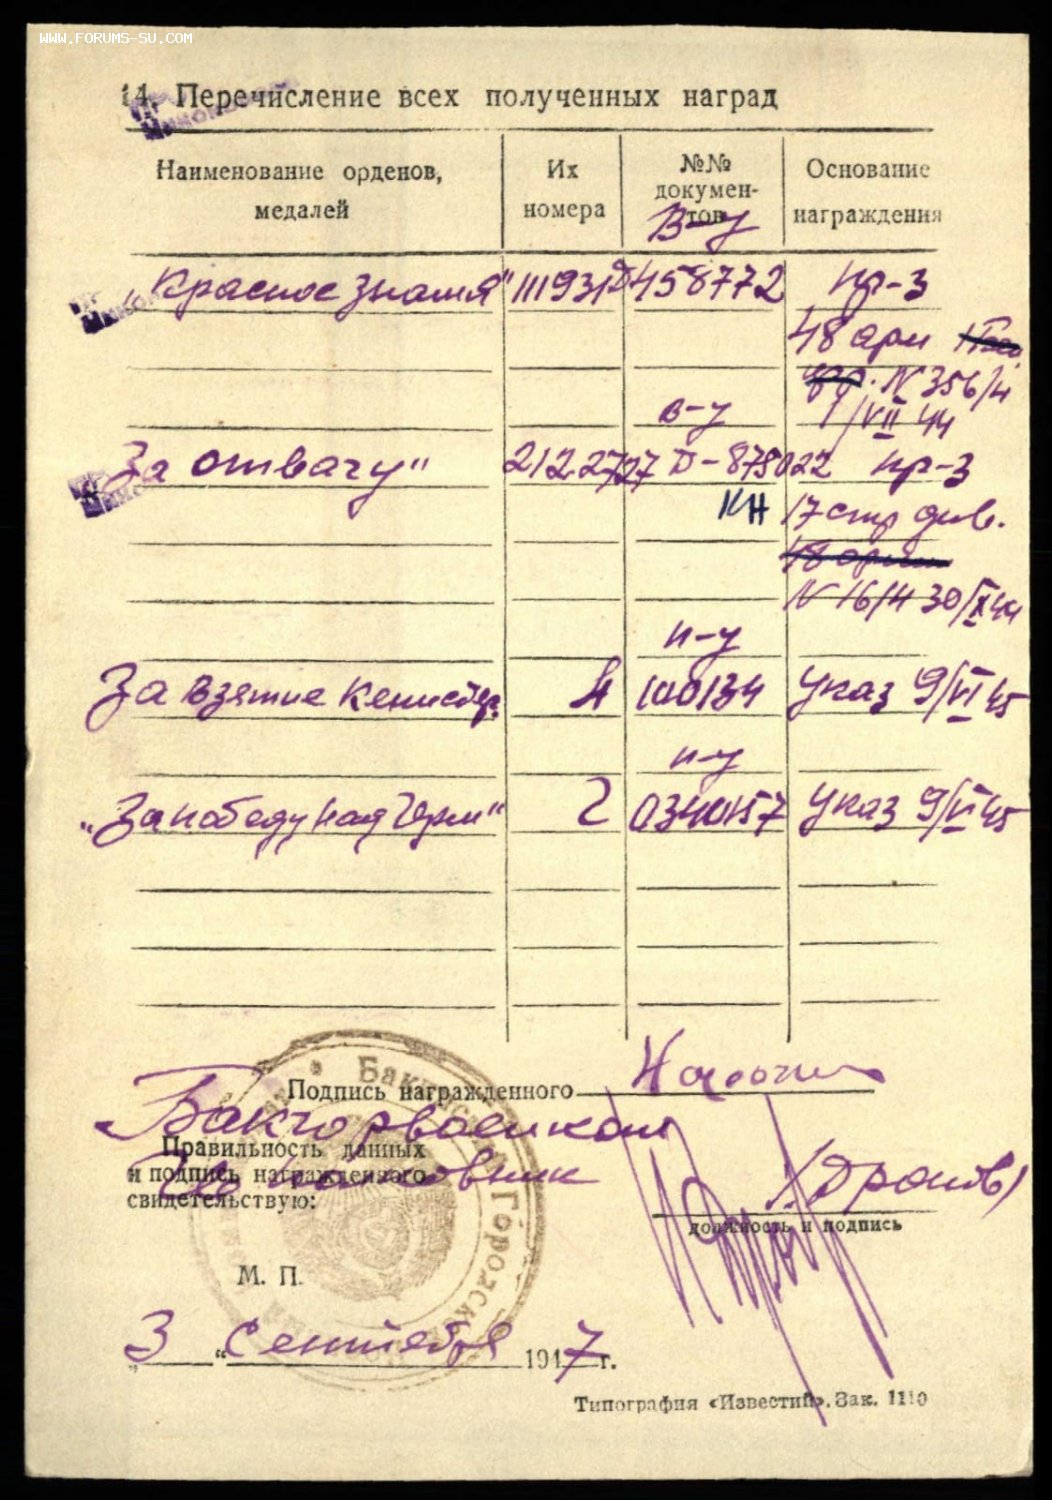 WWW.FORUMS-SU.COM
14. Перечисление всех полученных наград
Наименование орденов, медалей
Их номера
№№ документов
Основание награждения
в-у
„Красное Знамя" 111931 Д 458772 пр-3
48 арм
N 356/4
в-у 1/VII 44
За отвагу" 2122727 D-878022 пр-3
КН 17 стр див.
48 арм
N 16/4 30/IX 44
п-у
За взятие Кенисбер. 4 100134 Указ 9/VI 45
п-у
„За победу над Герм" 2 0340157 Указ 9/VI 45
Подпись награжденного
Бакгорвоенком
Правильность данных
и подпись награжденного
свидетельствую:
Подполковник
(Дронов)
должность и подпись
М. П.
„3 “ Сентября 1947 г.
Типография «Известий». Зак. 1110